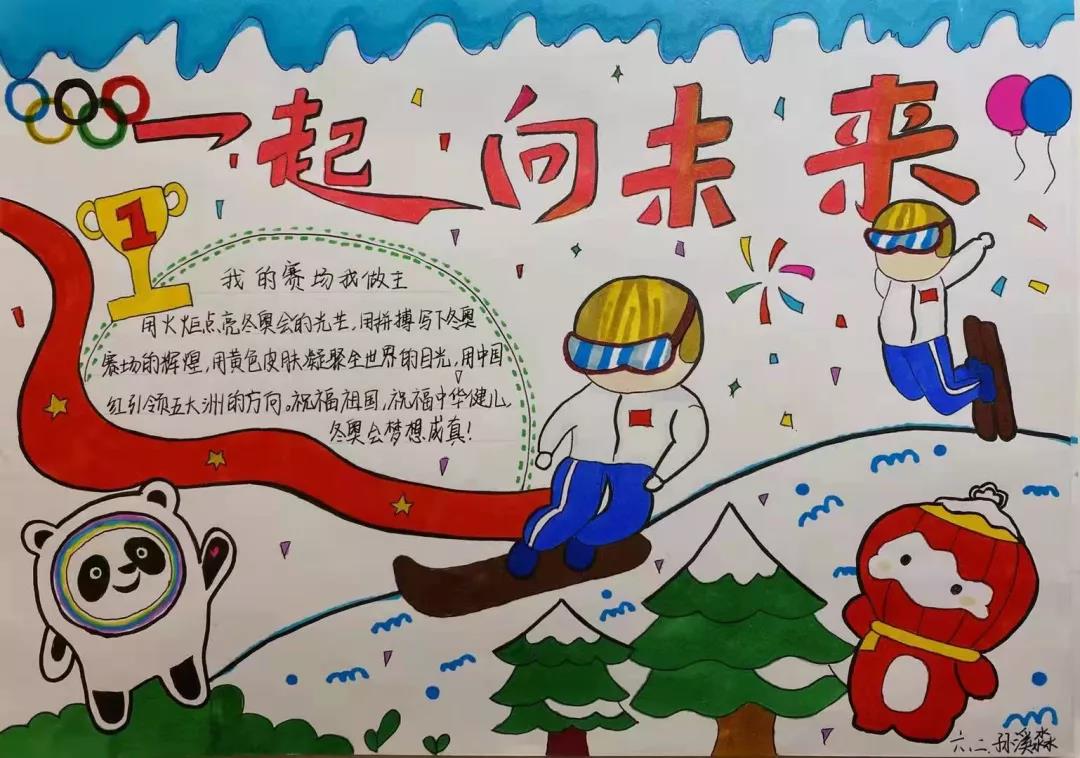 一起向未来
1
我的赛场我做主
用火炬点亮冬奥会的光芒,用拼搏写下冬奥
赛场的辉煌,用黄色皮肤凝聚全世界的目光,用中国
红引领五大洲的方向。祝福祖国,祝福中华健儿
冬奥会梦想成真!
六.二.孙溪淼